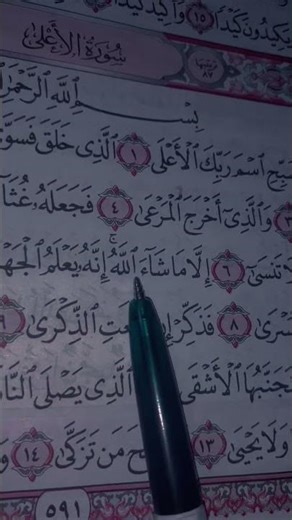 يَكِيدُونَ كَيْدًا ١٥ وَأَكِيدُ كَيْدًا
سُورَةُ الأَعْلَى
٨٧
بِسْمِ اللَّهِ الرَّحْمَٰنِ
سَبِّحِ اسْمَ رَبِّكَ الْأَعْلَى ١ الَّذِي خَلَقَ فَسَوَّىٰ
٣ وَالَّذِي أَخْرَجَ الْمَرْعَىٰ ٤ فَجَعَلَهُ غُثَاءً
تَنسَىٰ ٦ إِلَّا مَا شَاءَ اللَّهُ ۚ إِنَّهُ يَعْلَمُ الْجَهْرَ
٨ فَذَكِّرْ إِن نَّفَعَتِ الذِّكْرَىٰ ٩
الْأَشْقَى الَّذِي يَصْلَى النَّارَ
وَلَا يَحْيَىٰ ١٣ مَن تَزَكَّىٰ ١٤
٥٩١